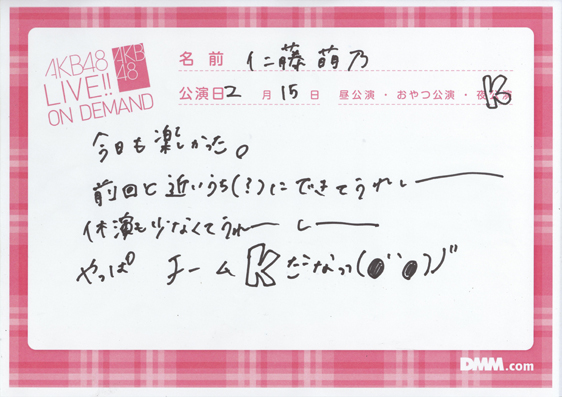 AKB48
LIVE!!
ON DEMAND
AKB
48
名前 仁藤萌乃
公演日 2月15日 昼公演・おやつ公演・夜公演 K
今日も楽しかった。
前回と近いうち(?)にできてうれしー
休演も少なくてうれーしー
やっぱ チームKだなっっ(●¨●)ノ゛
DMM.com